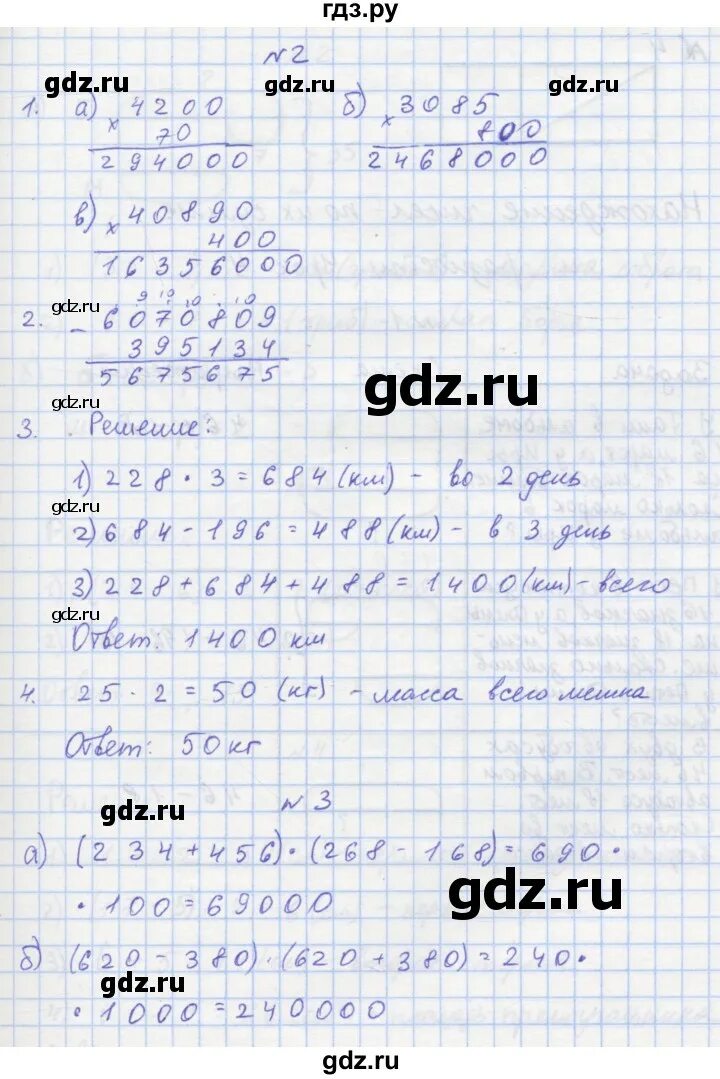 гдз.ру
№2
gdz.ru
gdz.ru
1. а) × 4200 б) × 3085
70 800
294000 2468000
gdz.ru
в) × 40890
400
16356000
9 10 10 10
gdz.ru
2. - 6070809
395134
5675675
gdz.ru
gdz.ru
3. Решение:
1) 228 · 3 = 684 (км) - во 2 день
gdz.ru
2) 684 - 196 = 488 (км) - в 3 день
3) 228 + 684 + 488 = 1400 (км) - всего
gdz.ru
Ответ: 1400 км
4. 25 · 2 = 50 (кг) - масса всего мешка
Ответ: 50 кг
№3
gdz.ru
а) (234 + 456) · (268 - 168) = 690 ·
gdz.ru
· 100 = 69000
б) (620 - 380) · (620 + 380) = 240 ·
gdz.ru
· 1000 = 240000
gdz.ru